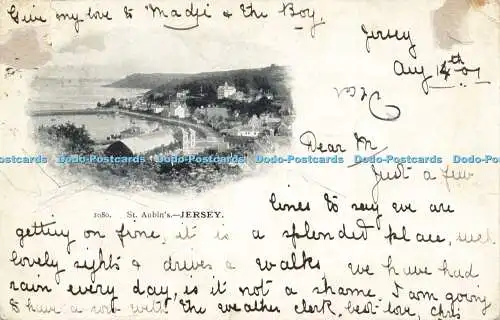 Give my love to Madji & the Boy.
Jersey
Aug 14th 01
Dear M,
Just a few
lines to say we are
getting on fine, it is a splendid place, such
lovely sights & drives & walks, we have had
rain every day, is it not a shame. I am going
to have a row with the weather clerk, best love, chris
1080. St. Aubin's.—JERSEY.
Dodo-Postcards Dodo-Postcards Dodo-Postcards Dodo-Postcards Dodo-Postcards